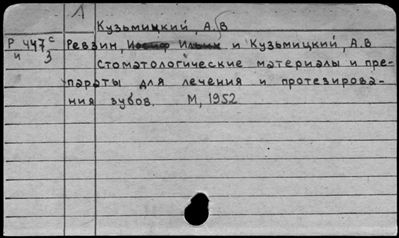 А
Кузьмицкий, А.В
Р 447 с
и 3
Ревзин, Иосиф Ильич и Кузьмицкий, А.В
Стоматологические материалы и пре-
параты для лечения и протезирова-
ния зубов. М, 1952